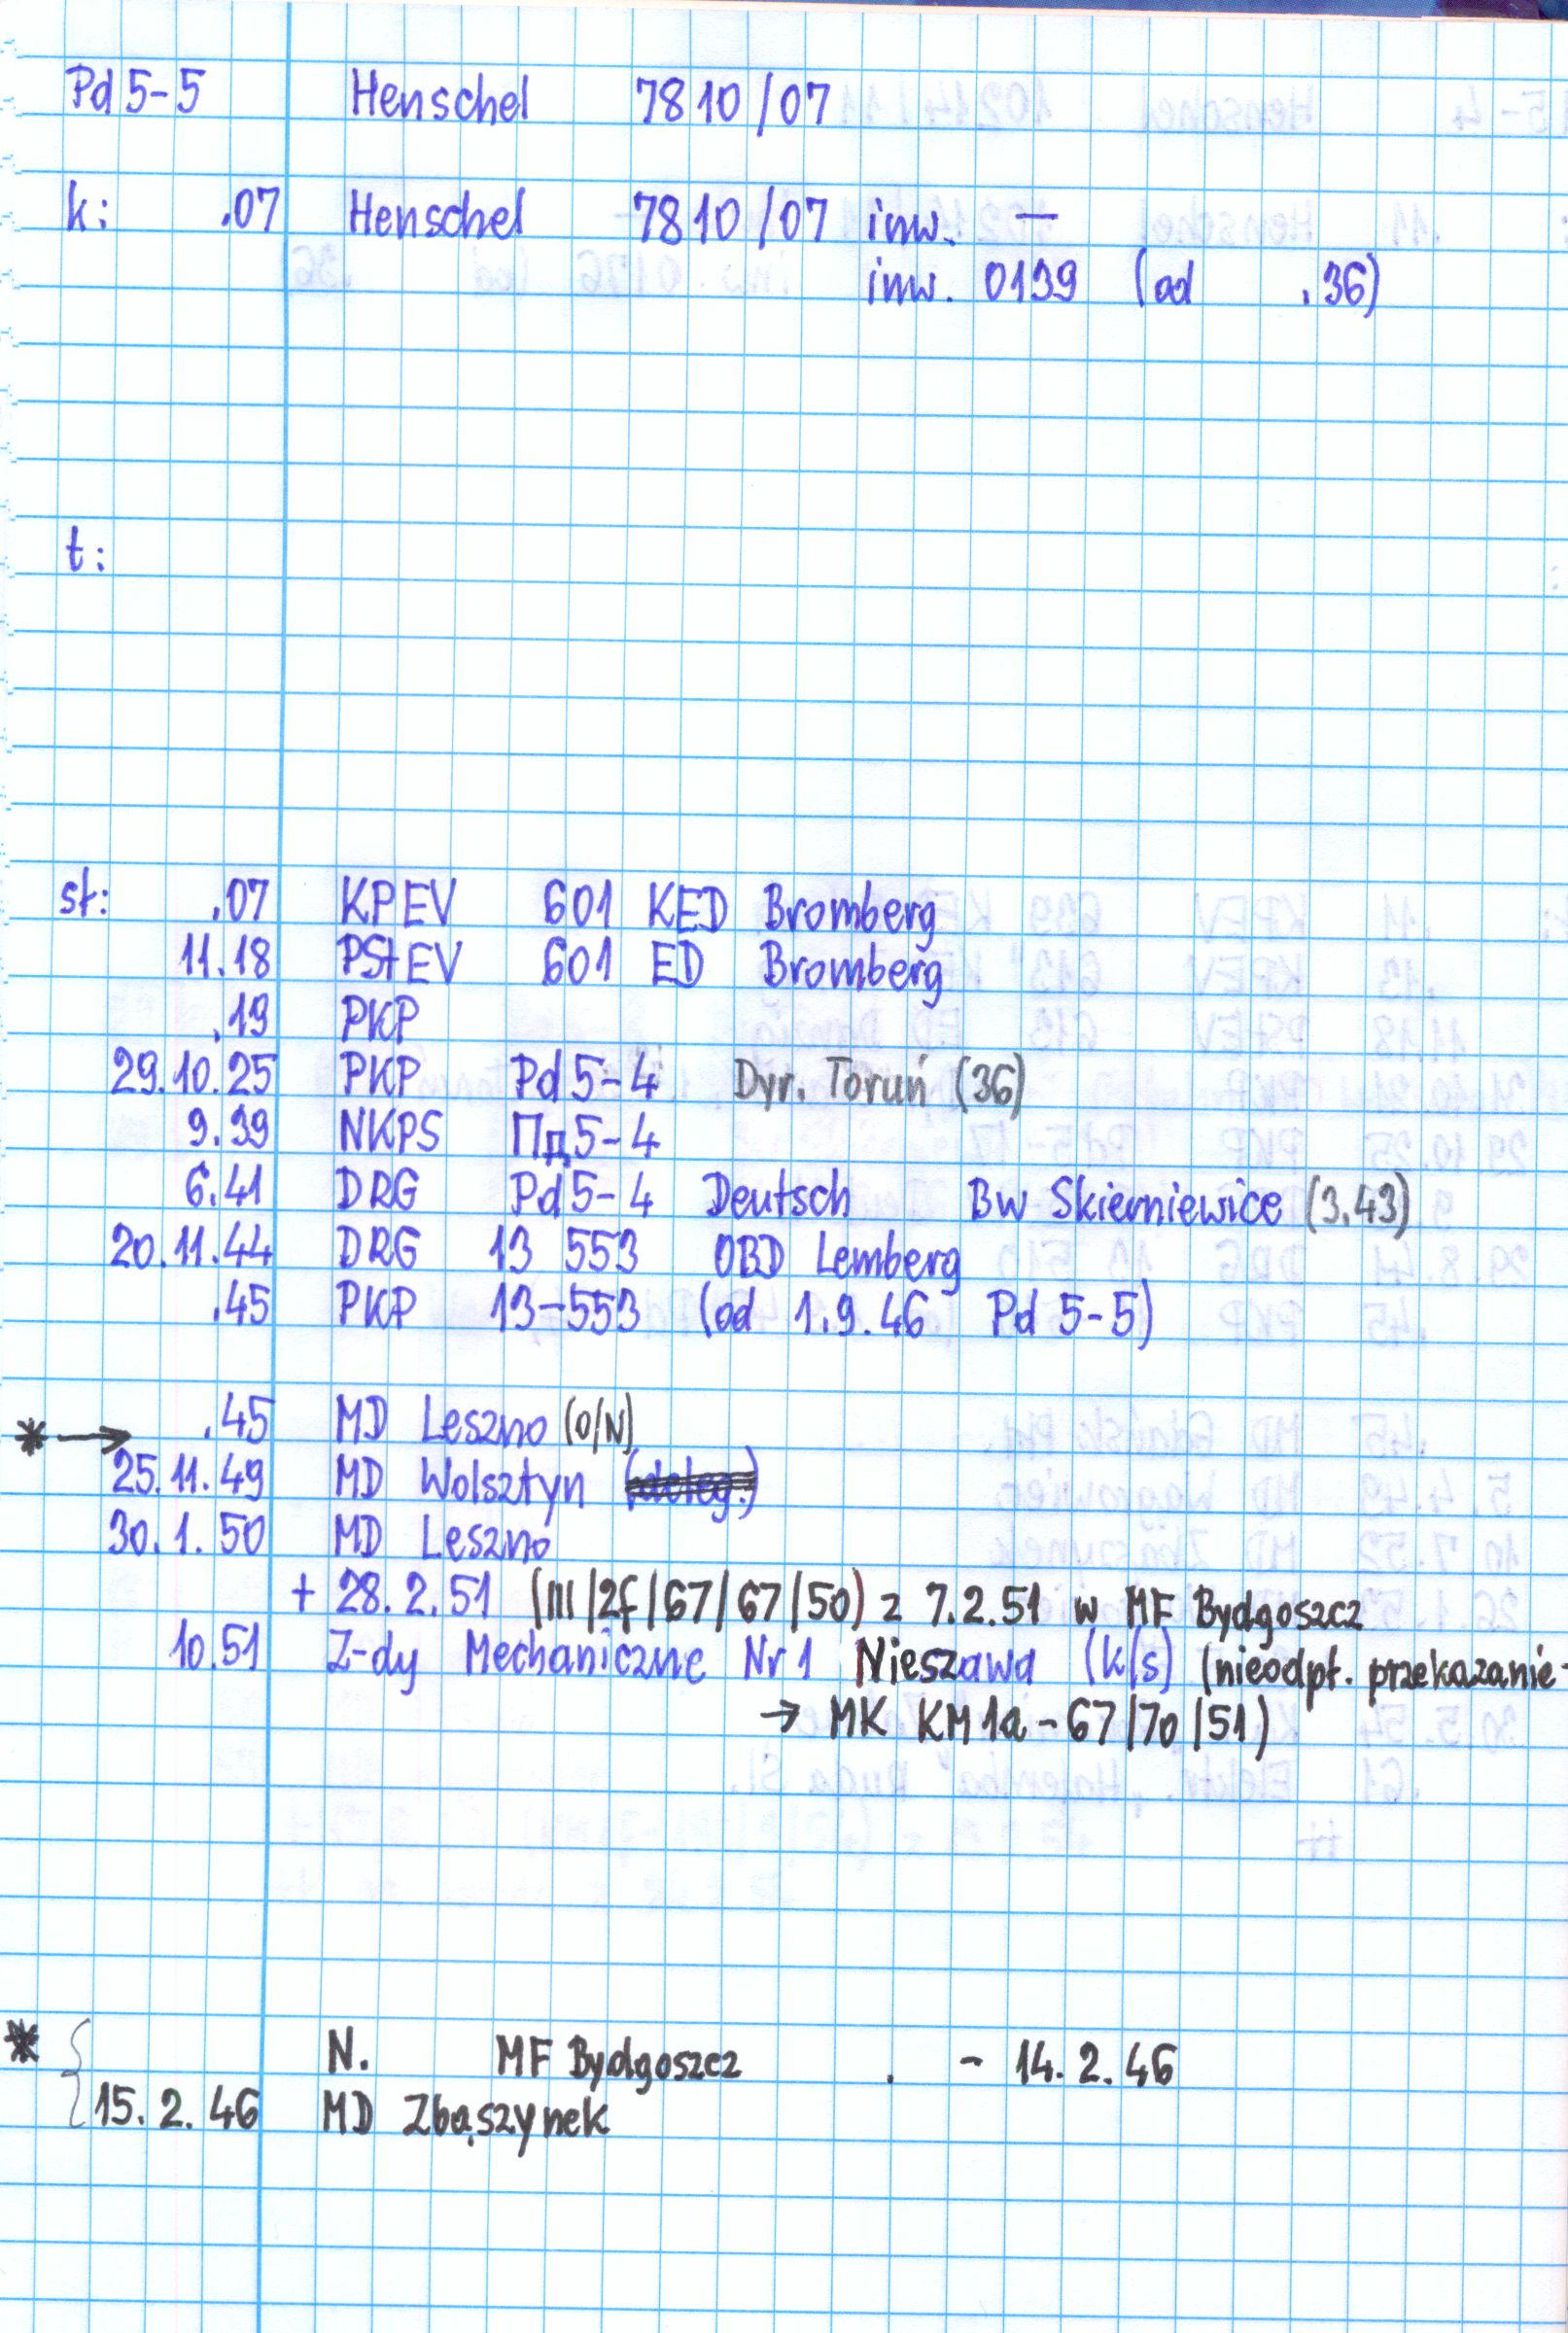 Pd 5-5 Henschel 7810/07
k: .07 Henschel 7810/07 inw. —
inw. 0139 (od .36)
t:
st: .07 KPEV 601 KED Bromberg
11.18 PStEV 601 ED Bromberg
.19 PKP
29.10.25 PKP Pd 5-4 Dyr. Toruń (36)
9.39 NKPS Пд 5-4
6.41 DRG Pd 5-4 Deutsch Bw Skierniewice (3.43)
20.11.44 DRG 13 553 OBD Lemberg
.45 PKP 13-553 (od 1.9.46 Pd 5-5)
.45 MD Leszno (O/N)
* →
25.11.49 MD Wolsztyn (deleg.)
30.1.50 MD Leszno
+ 28.2.51 (III/2f/67/67/50) z 7.2.51 w MF Bydgoszcz
10.51 Z-dy Mechaniczne Nr 1 Nieszawa (k/s) (nieodpł. przekazanie-
→ MK KM1a-67/70/51)
* { N. MF Bydgoszcz . - 14.2.46
15.2.46 MD Zbąszynek